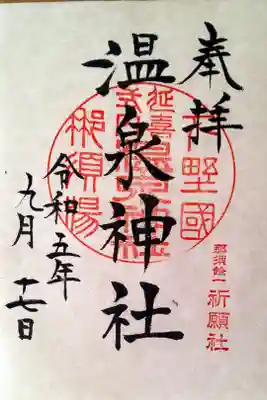 奉拝
温泉神社
令和五年
九月十七日
下野國
延喜式内
那須湯
那須餘一
祈願社